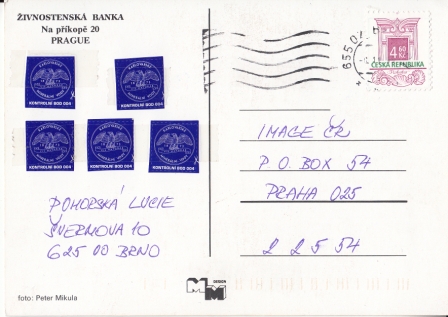 ŽIVNOSTENSKÁ BANKA
Na příkopě 20
PRAGUE
KONTROLNÍ BOD 004
KONTROLNÍ BOD 004
KONTROLNÍ BOD 004
KONTROLNÍ BOD 004
KONTROLNÍ BOD 004
POHORSKÁ LUCIE
ŠVERMOVA 10
625 00 BRNO
foto: Peter Mikula
MM DESIGN
65501
4 60 Kčs
ČESKÁ REPUBLIKA
IMAGE ČR
P.O. BOX 54
PRAHA 025
2 2 5 54